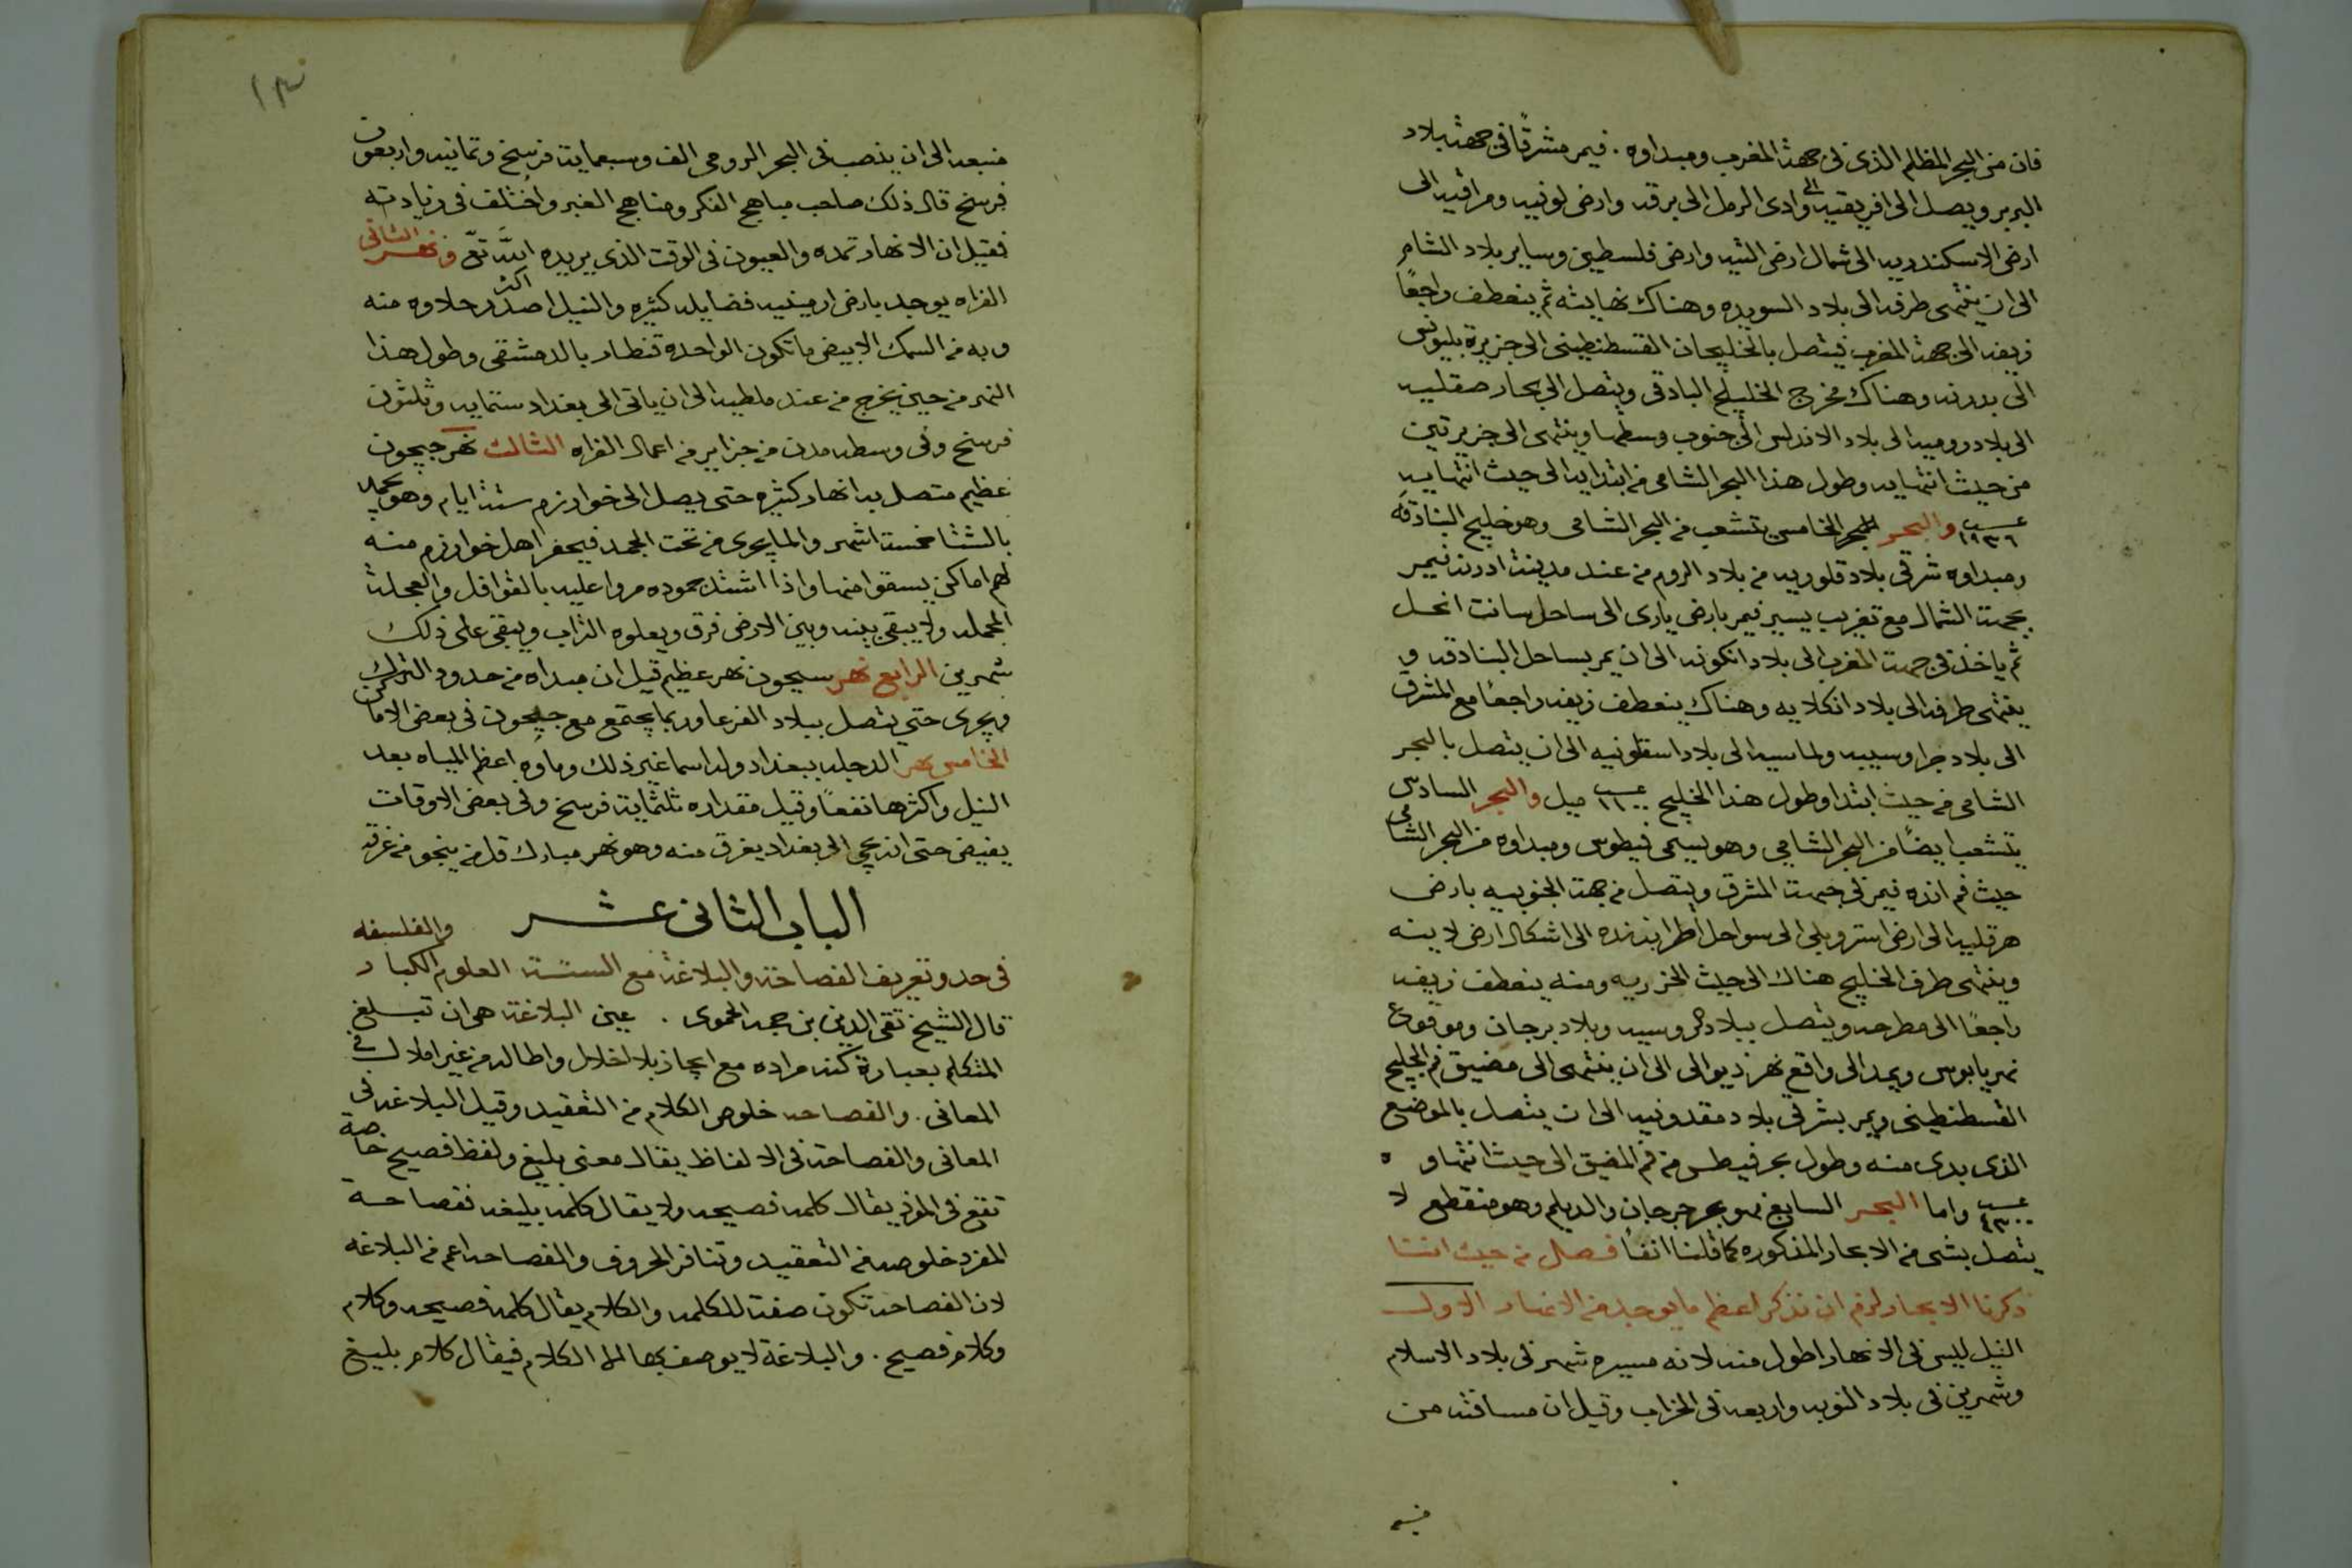 فان من البحر المظلم الذى فى جهة المغرب ومبداوه . فيمر مشرقًا فى جهة بلاد
البربر ويصل الى افريقيه الى وادى الرمل الى برقه وارض لونيه ومراقيه الى
ارض الاسكندريه الى شمال ارض التيه وارض فلسطين وساير بلاد الشام
الى ان ينتهى طرفه الى بلاد السويده وهناك نهايته ثم ينعطف راجعًا
زيفه الى جهة المغرب فيتصل بالخليجان القسطنطينى الى جزيرة بليونس
الى بدرنه وهناك مخرج الخليج البنادقى ويتصل الى بحار صقليه
الى بلاد روميه الى بلاد الاندلس الى جنوب وسطها وينتهى الى جزيرتين
من حيث انتهايه وطول هذا البحر الشامى من ابتدايه الى حيث انتهايه
١٩٣٦ والبحر الخامس يتشعب من البحر الشامى وهو خليج البنادقه
ومبداوه شرقى بلاد قلوريه من بلاد الروم من عند مدينة ادرنه فيمر
بجهة الشمال مع تغريب يسير فيمر بارض يارى الى ساحل سانت انجل
ثم ياخذ فى جهة المغرب الى بلاد انكونه الى ان يمر بساحل البنادقه و
ينتهى طرفه الى بلاد انكلايه وهناك ينعطف زيفه راجعًا مع المشرق
الى بلاد جراوسييه ولماسيه الى بلاد اسقلونيه الى ان يتصل بالبحر
الشامى من حيث ابتدا وطول هذا الخليج ١١٠٠ ميل والبحر السادس
يتشعب ايضًا من البحر الشامى وهو يسمى فيطوس ومبداوه من البحر الشامى
حيث فم انده فيمر فى جهة المشرق ويتصل من جهة الجنوبيه بارض
هرقليه الى ارض استروبلى الى سواحل اطرابزنده الى اشكال ارض لانيه
وينتهى طرف الخليج هناك الى حيث الخزريه ومنه ينعطف زيفه
راجعًا الى مطرحه ويتصل ببلاد الروسيه وبلاد برجان وموقوع
نهر يابوس ويمد الى واقع نهر ذيوالى الى ان ينتهى الى مضيق فم الخليج
القسطنطينى ويمر بشرقى بلاد مقدونيه الى ان يتصل بالموضع
الذى بدى منه وطول بحر فيطس من فم المضيق الى حيث انتهاوه
٤٣٠٠ واما البحر السابع فهو بحر جرجان والديلم وهو منقطع لا
يتصل بشى من الابحار المذكوره كما قلنا انفًا فصل من حيث اننا
ذكرنا الابحار لزم ان نذكر اعظم ما يوجد من الانهار الاول
النيل ليس فى الانهار اطول منه لانه مسيره شهر فى بلاد الاسلام
وشهرين فى بلاد النوبه واربعه فى الخراب وقيل ان مسافته من
منبعه الى ان ينصب فى البحر الرومى الف وسبعماية فرسخ وثمانيه واربعون
فرسخ قال ذلك صاحب مباهج الفكر ومناهج العبر واختلف فى زيادته
فقيل ان الانهار تمده والعيون فى الوقت الذى يريده الله تع ونهر الثانى
الفراه يوجد بارض ارمينيه فضايله كثيره والنيل اصدر اكثر حلاوه منه
وبه من السمك الابيض ما تكون الواحده قنطار بالدمشقى وطول هذا
النهر من حين يخرج من عند ملطيه الى ان ياتى الى بغداد ستمايه وثلثون
فرسخ وفى وسطه مدن من جزاير من اعمال الفراه الثالث نهر جيحون
عظيم متصل به انهار كثيره حتى يصل الى خوارزم ستة ايام وهو يجمد
بالشتا خمسة اشهر والما يجرى من تحت الجمد فيحفر اهل خوارزم منه
لهم اماكن يسقوا منها واذا اشتد جموده مروا عليه بالقوافل والعجلة
المحمله ولا يبقى بينه وبين الارض فرق ويعلوه التراب ويبقى على ذلك
شهرين الرابع نهر سيحون نهر عظيم قيل ان مبداه من حدود الترك
ويجرى حتى يتصل ببلاد الفرعا وربما يجتمع مع جيحون فى بعض الاماكن
الخامس نهر الدجله ببغداد وله اسما غير ذلك وماوه اعظم المياه بعد
النيل واكثرها نفعًا وقيل مقداره ثلثماية فرسخ وفى بعض الاوقات
يفيض حتى انه يجى الى بغداد يغرق منه وهو نهر مبارك قل من ينجو من غرقه
الباب الثانى عشر
فى حد وتعريف الفصاحة والبلاغة مع الستة العلوم الكبار والفلسفه
قال الشيخ تقى الدين بن حجه الحموى . عين البلاغة هى ان تبلغ
المتكلم بعبارة كنه مراده مع ايجاز بلا اخلال واطاله من غير املال فى
المعانى . والفصاحه خلوص الكلام من التعقيد وقيل البلاغه فى
المعانى والفصاحة فى الالفاظ يقال معنى بليغ ولفظ فصيح خاصة
تقع فى المفرد يقال كلمه فصيحه ولا يقال كلمه بليغه ففصاحة
المفرد خلوصه من التعقيد وتنافر الحروف والفصاحه اعم من البلاغه
لان الفصاحه تكون صفة للكلمه والكلام يقال كلمه فصيحه وكلام
وكلام فصيح . والبلاغة لا يوصف بها الا الكلام فيقال كلام بليغ